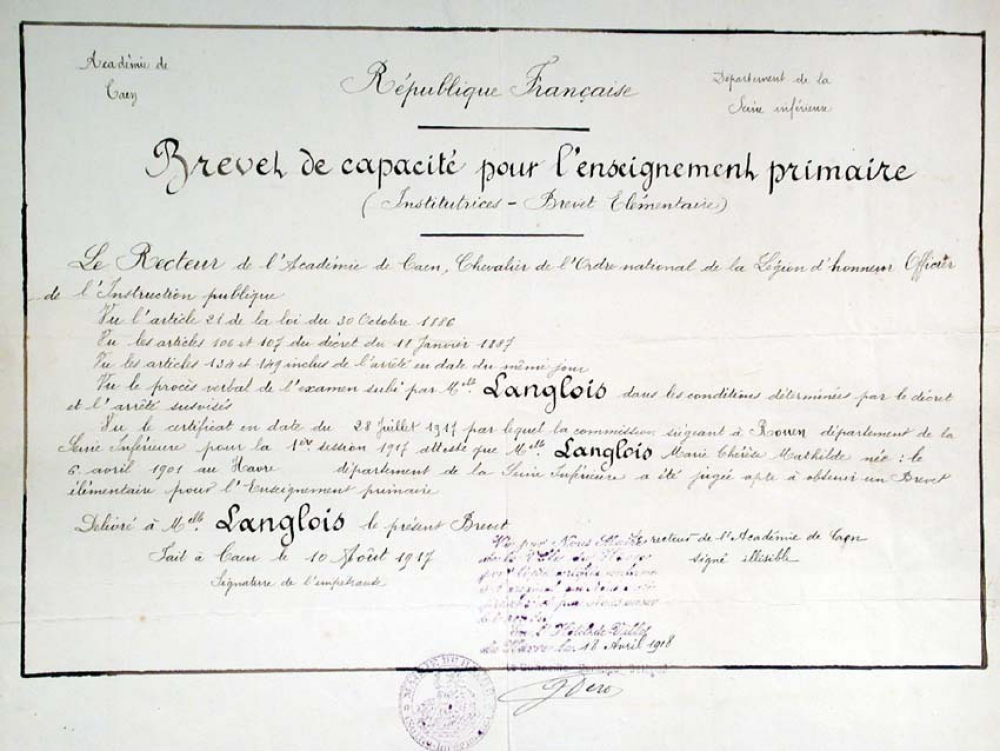 Académie de
Caen
République Française
Département de la
Seine inférieure
Brevet de capacité pour l'enseignement primaire
(Institutrices - Brevet Elémentaire)
Le Recteur de l'Académie de Caen, Chevalier de l'Ordre national de la Légion d'honneur Officier
de l'Instruction publique
Vu l'article 21 de la loi du 30 Octobre 1886
Vu les articles 106 et 107 du décret du 18 Janvier 1887
Vu les articles 134 et 149 inclus de l'arrêté en date du même jour
Vu le procès verbal de l'examen subi par Melle Langlois dans les conditions déterminées par le décret
et l'arrêté susvisés
Vu le certificat en date du 28 Juillet 1917 par lequel la commission siégeant à Rouen département de la
Seine Inférieure pour la 1ère session 1917 atteste que Melle Langlois Marie Thérèse Mathilde née : le
6 avril 1901 au Havre département de la Seine Inférieure a été jugée apte à obtenir un Brevet
élémentaire pour l'Enseignement primaire
Délivré à Melle Langlois le présent Brevet
Fait à Caen le 10 Août 1917
Signature de l'impétrante
recteur de l'Académie de Caen
signé illisible
Vu par Nous Maire
de la Ville du Havre
l'Hôtel de Ville
du Havre le 18 Avril 1918